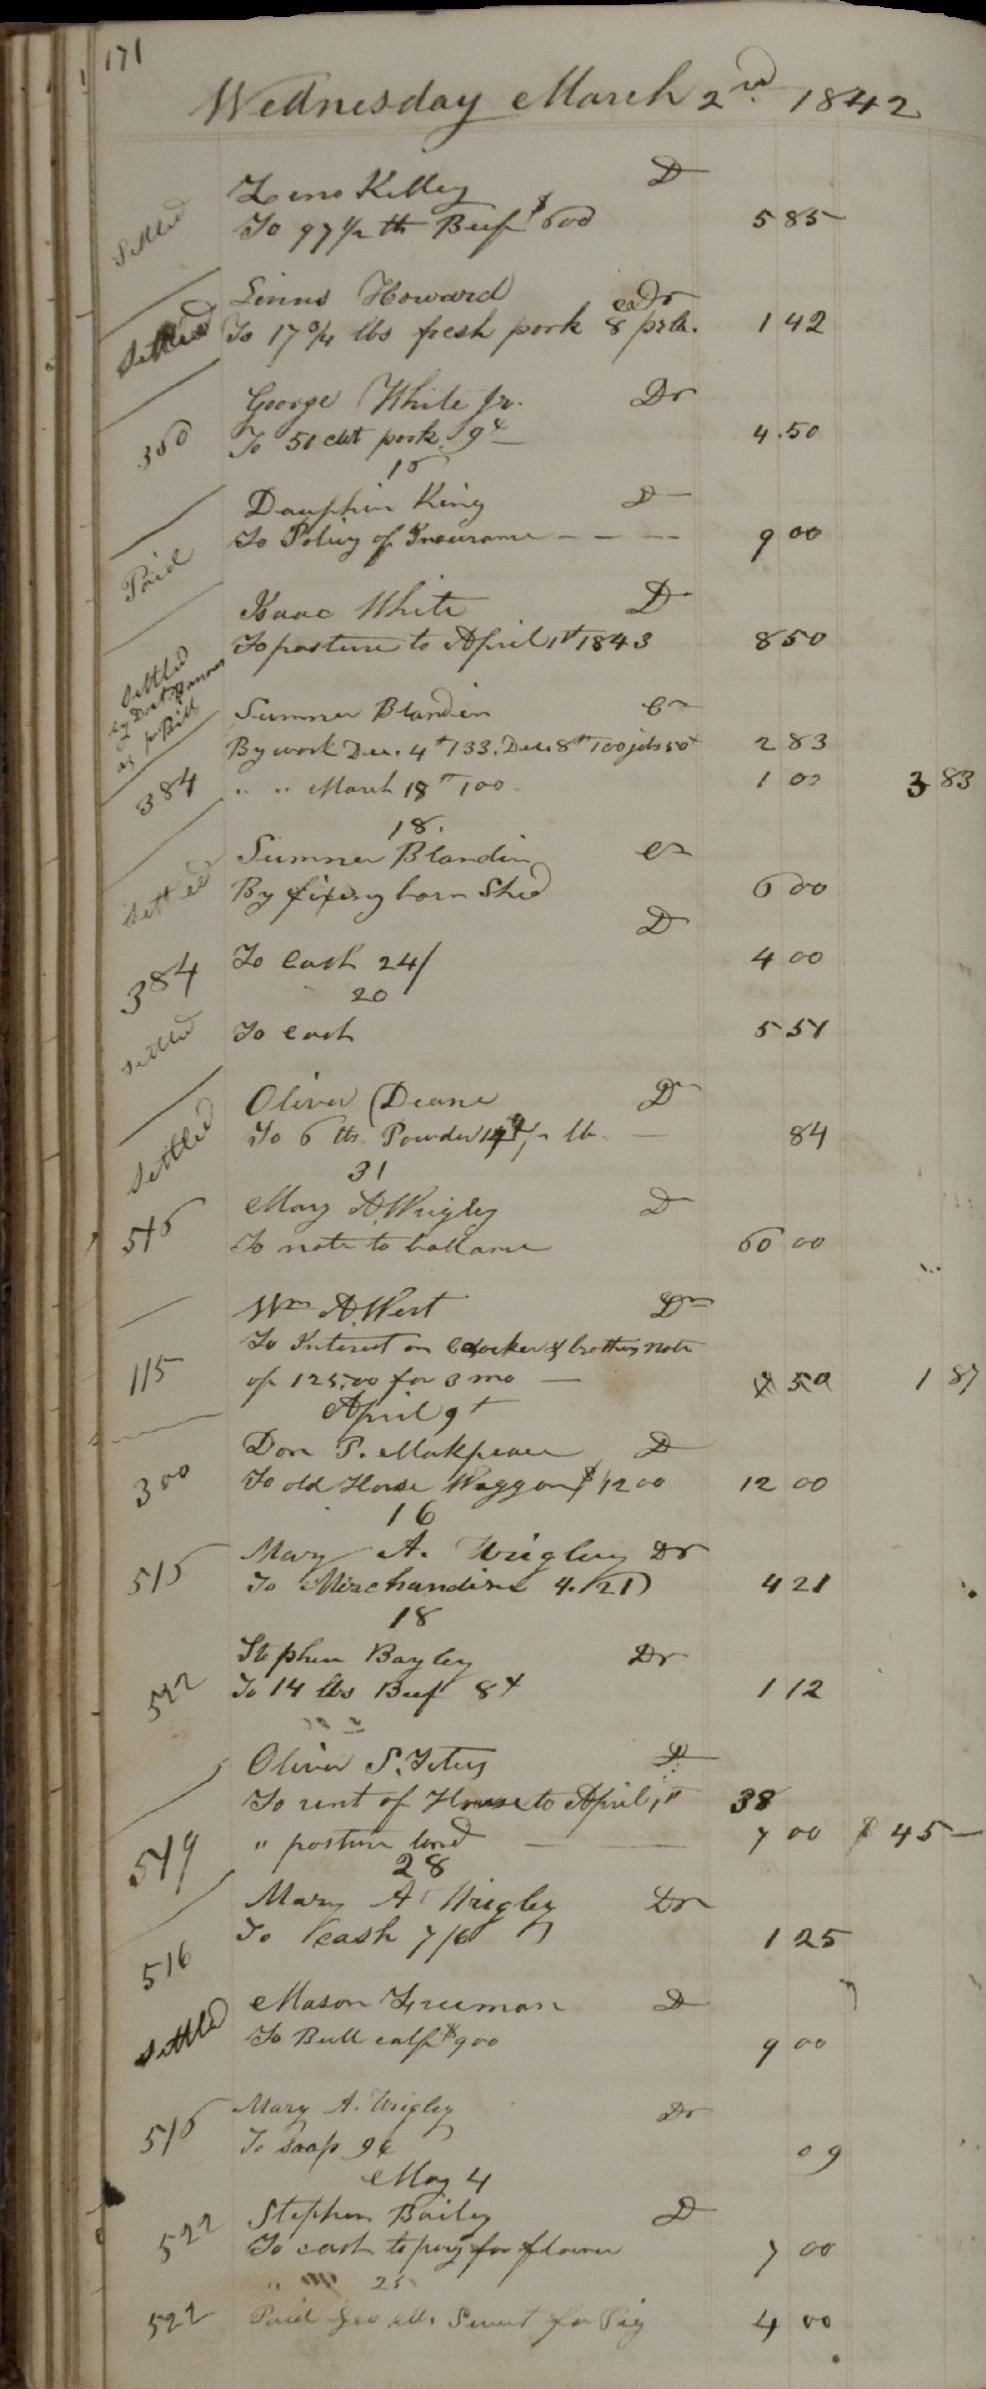 171
Wednesday March 2nd 1842
Settled
Zeno Kelley D
To 97 1/2 lb Beef $600 5 85
Settled
Linus Howard Dr
To 17 3/4 lbs fresh pork 8 cts pr lb. 1 42
360
George White Jr. Dr
To 50 cwt pork 9 c 4.50
15
Dauphin King D
To Policy of Insurance 9 00
Paid
Isaac White D
To pasture to April 1st 1843 8 50
Settled
by
Bill
384
Sumner Blandin Cr
By work Dec. 4th 133. Dec. 8th 100 jobs 50 2 83
" " March 18th 100 1 00 3 83
18.
Settled
Sumner Blandin Cr
By fixing barn Shed 6 00
D
384
To Cash 24/ 4 00
20
Settled
To cash 5 51
Oliver Deane Dr
To 6 lb Powder 14 lb 84
Settled
31
516
Mary A Wrigley D
To note to ballance 60 00
Wm A West Dr
To Interest on Crocker & brothers note
115
of 125,00 for 3 mo 1 87
April 9t
Don P. Makpeace D
300
To old Horse Waggon $1200 12 00
16
515
Mary A. Wrigley Dr
To Merchandise 4.21 4 21
18
Stephen Bayley Dr
522
To 14 lbs Beef 8 c 1 12
Oliver S. Titus D
To rent of House to April 1st 38
549
" pasture land 7 00 $ 45 —
28
Mary A Wrigley Dr
516
To cash 7/6 1 25
Settled
Mason Freeman D
To Bull calf $900 9 00
516
Mary A. Wrigley Dr
To Soap 9c 09
May 4
522
Stephen Bailey D
To cash to pay for flower 7 00
" 25
522
Paid Geo M. Sweet for Pig 4 00